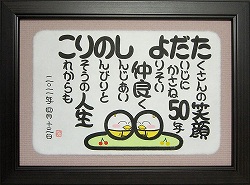 たくさんの笑顔
だいじに
かさね50年
よりそい
仲良く
しんじあい
のんびりと
りそうの人生
これからも
二〇二一年 四月十三日